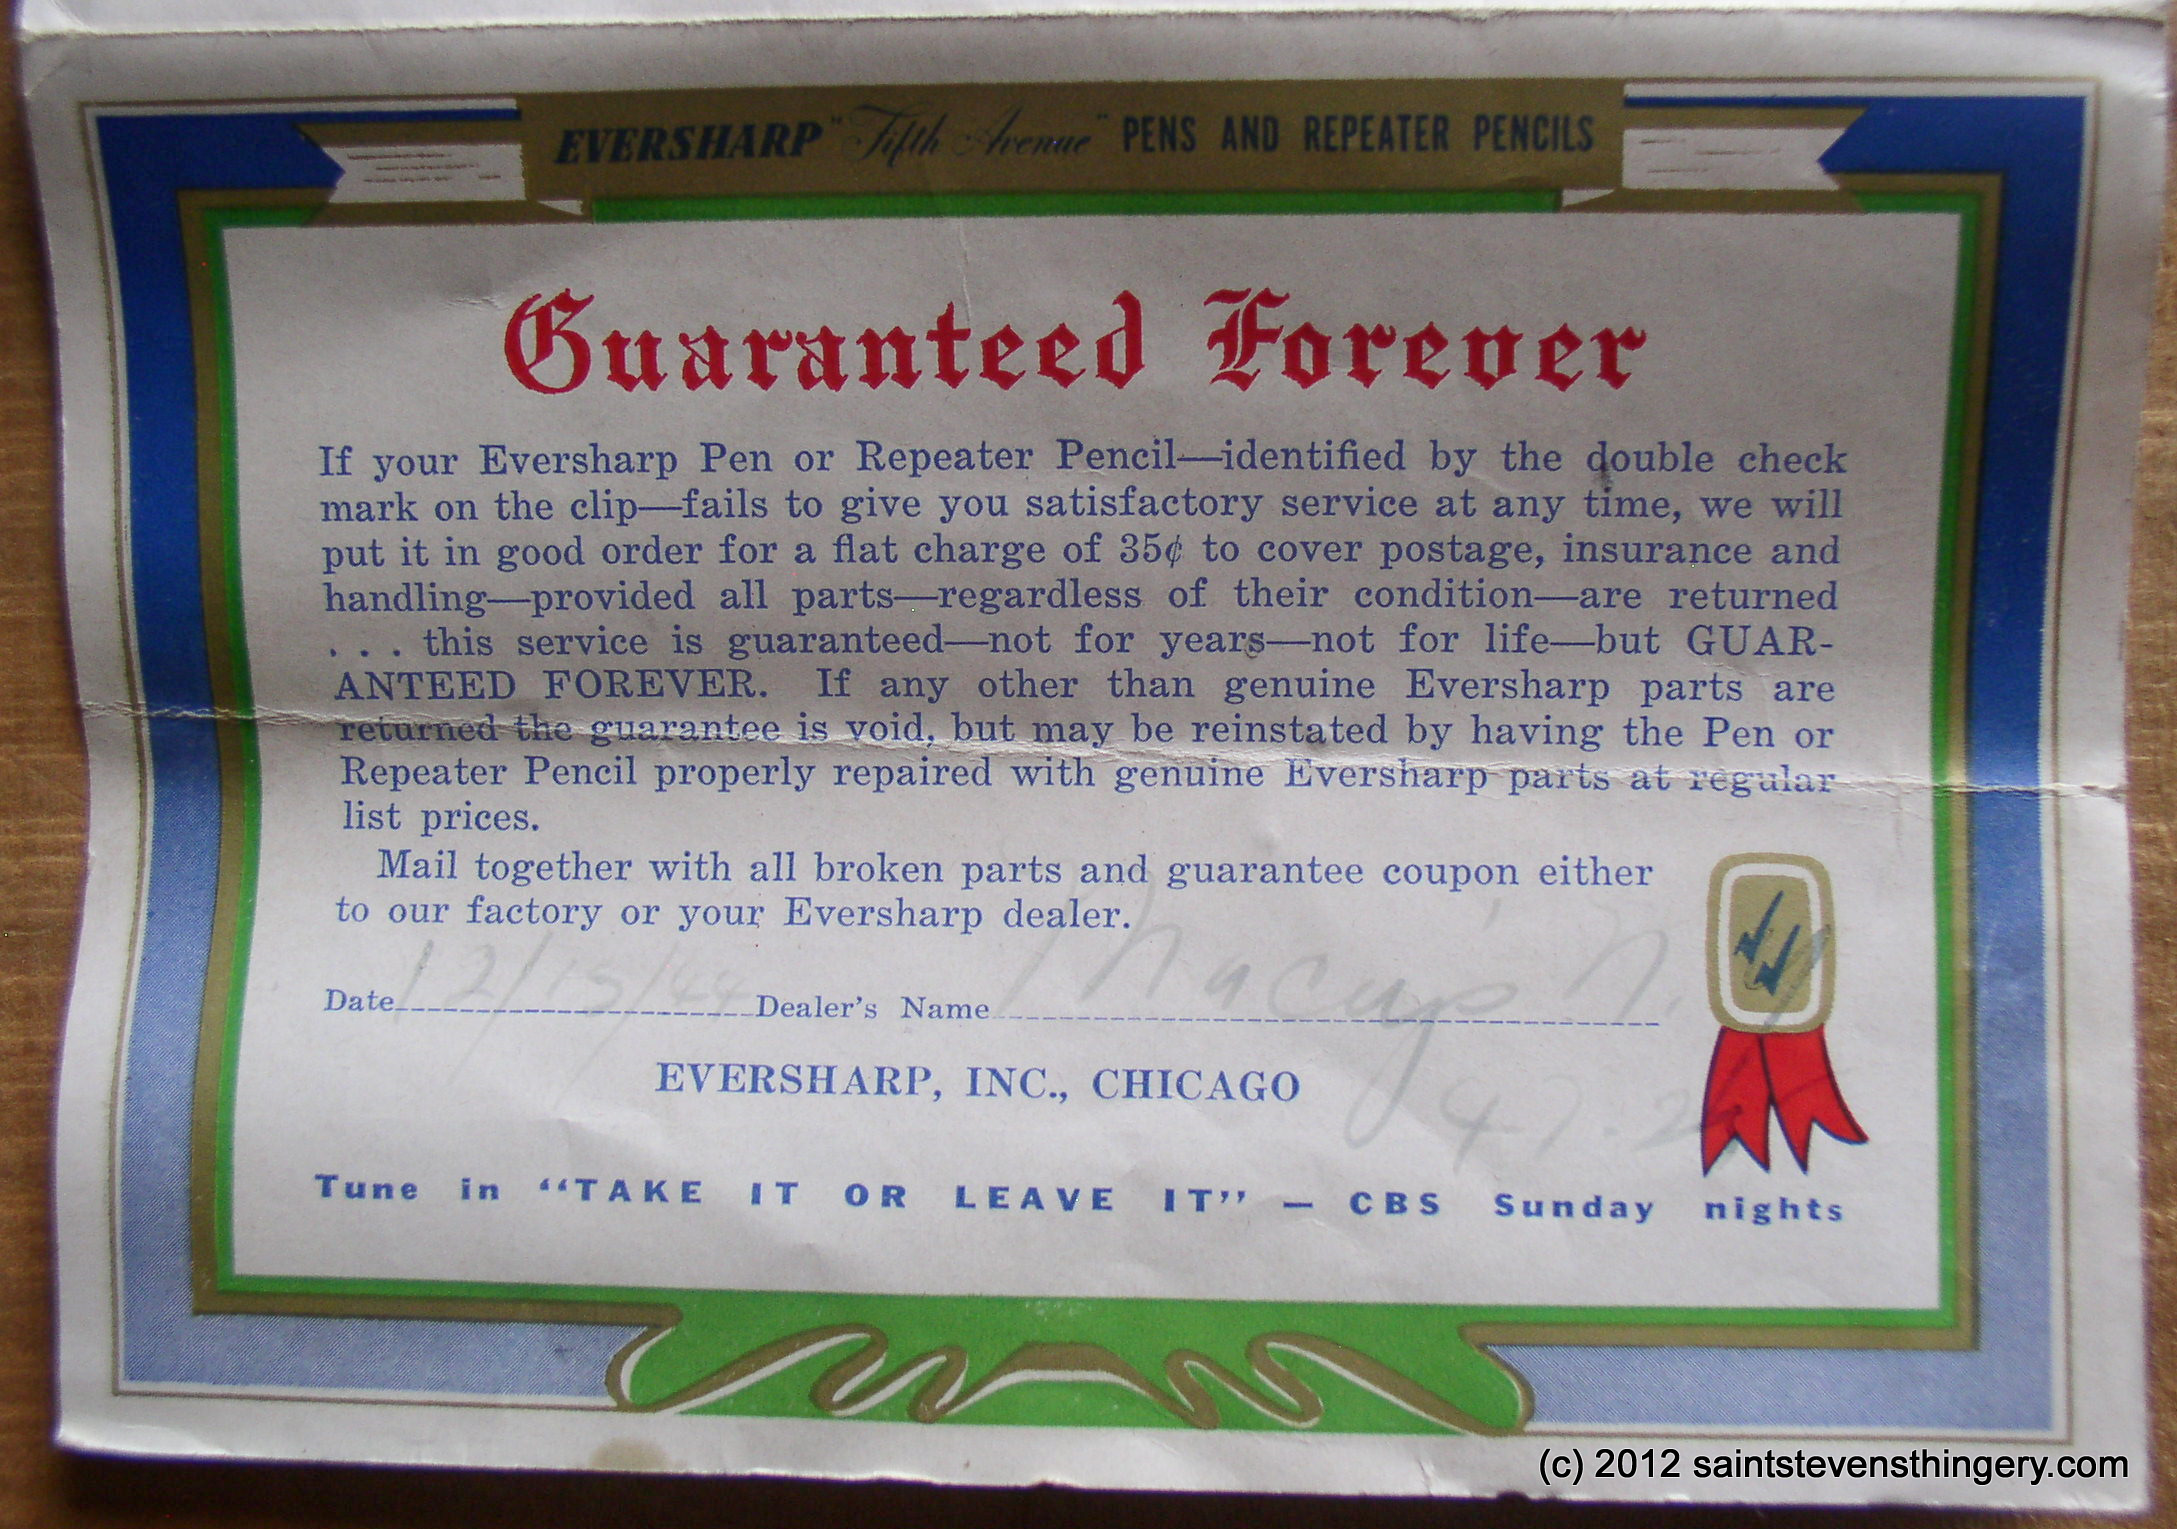 EVERSHARP "Fifth Avenue" PENS AND REPEATER PENCILS
Guaranteed Forever
If your Eversharp Pen or Repeater Pencil—identified by the double check
mark on the clip—fails to give you satisfactory service at any time, we will
put it in good order for a flat charge of 35¢ to cover postage, insurance and
handling—provided all parts—regardless of their condition—are returned
. . . this service is guaranteed—not for years—not for life—but GUAR-
ANTEED FOREVER. If any other than genuine Eversharp parts are
returned the guarantee is void, but may be reinstated by having the Pen or
Repeater Pencil properly repaired with genuine Eversharp parts at regular
list prices.
Mail together with all broken parts and guarantee coupon either
to our factory or your Eversharp dealer.
Date 12/15/44 Dealer's Name Macy's N.Y
EVERSHARP, INC., CHICAGO
Tune in "TAKE IT OR LEAVE IT" — CBS Sunday nights
(c) 2012 saintstevensthingery.com